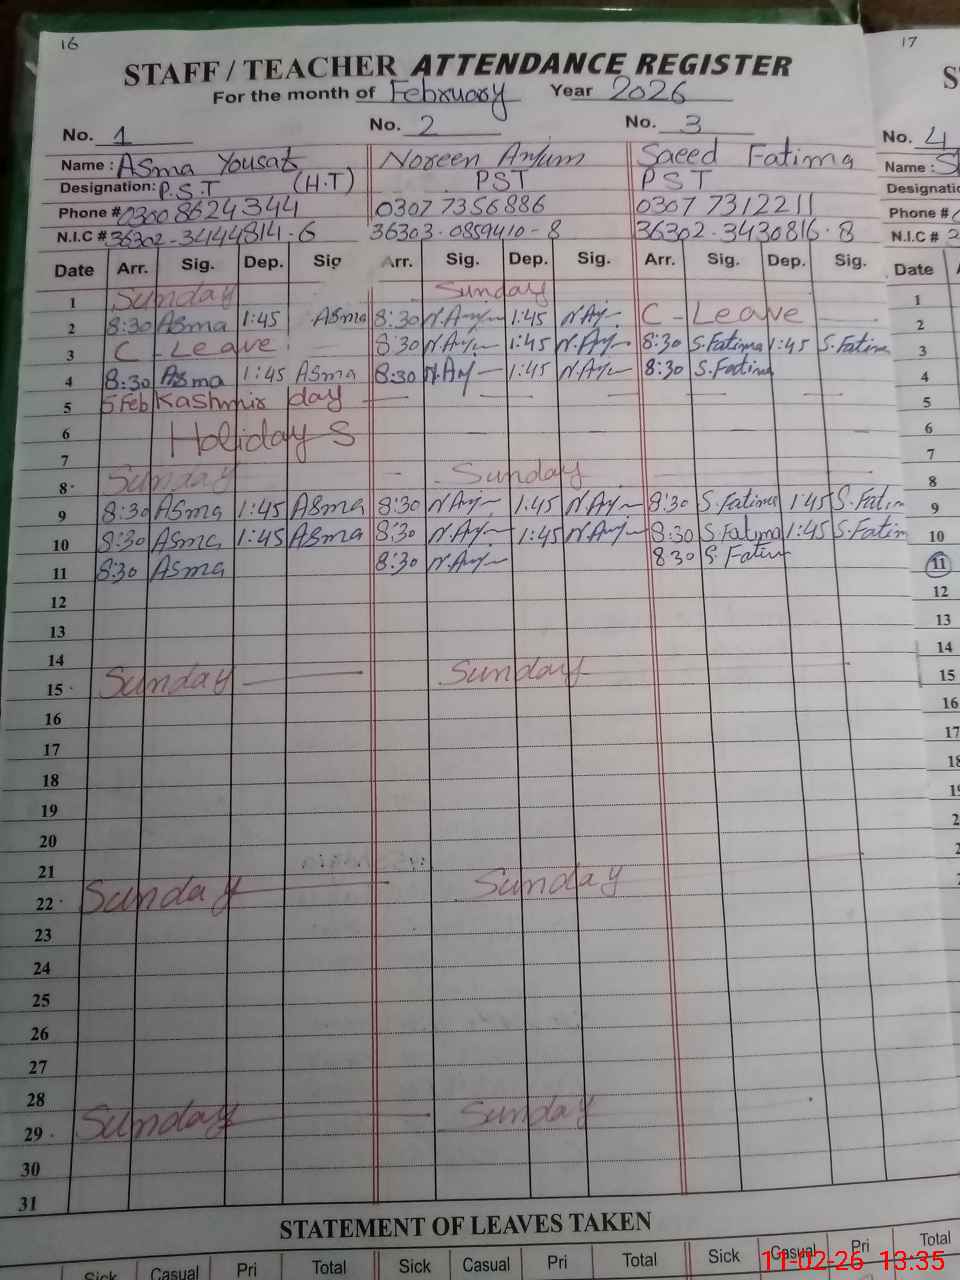 16
17
STAFF / TEACHER ATTENDANCE REGISTER
For the month of February Year 2026
No. 1 No. 2 No. 3 No. 4
Name : Asma Yousaf Noreen Anjum Saeed Fatima Name :
Designation: P.S.T (H.T) PST PST
Phone # 0300 8624344 0307 7356886 0307 7312211 Phone #
N.I.C # 36302-3444814-6 36303-0859410-8 36302-3430816-8 N.I.C #
Date Arr. Sig. Dep. Sig Arr. Sig. Dep. Sig. Arr. Sig. Dep. Sig. Date
1 Sunday Sunday 1
2 8:30 Asma 1:45 Asma 8:30 N.Anj 1:45 N.Anj C - Leave 2
3 C - Leave 8:30 N.Anj 1:45 N.Anj 8:30 S.Fatima 1:45 S.Fatima 3
4 8:30 Asma 1:45 Asma 8:30 N.Anj 1:45 N.Anj 8:30 S.Fatima 4
5 5 Feb Kashmir day 5
6 Holiday S 6
7 7
8 Sunday Sunday 8
9 8:30 Asma 1:45 Asma 8:30 N.Anj 1:45 N.Anj 8:30 S.Fatima 1:45 S.Fatim 9
10 8:30 Asma 1:45 Asma 8:30 N.Anj 1:45 N.Anj 8:30 S.Fatima 1:45 S.Fatim 10
11 8:30 Asma 8:30 N.Anj 8:30 S.Fatim 11
12 12
13 13
14 14
15 Sunday Sunday 15
16 16
17 17
18 18
19
20
21
22 Sunday Sunday
23
24
25
26
27
28
29 Sunday Sunday
30
31
STATEMENT OF LEAVES TAKEN
Sick Casual Pri Total Sick Casual Pri Total Sick Casual Pri Total
11-02-26 13:35